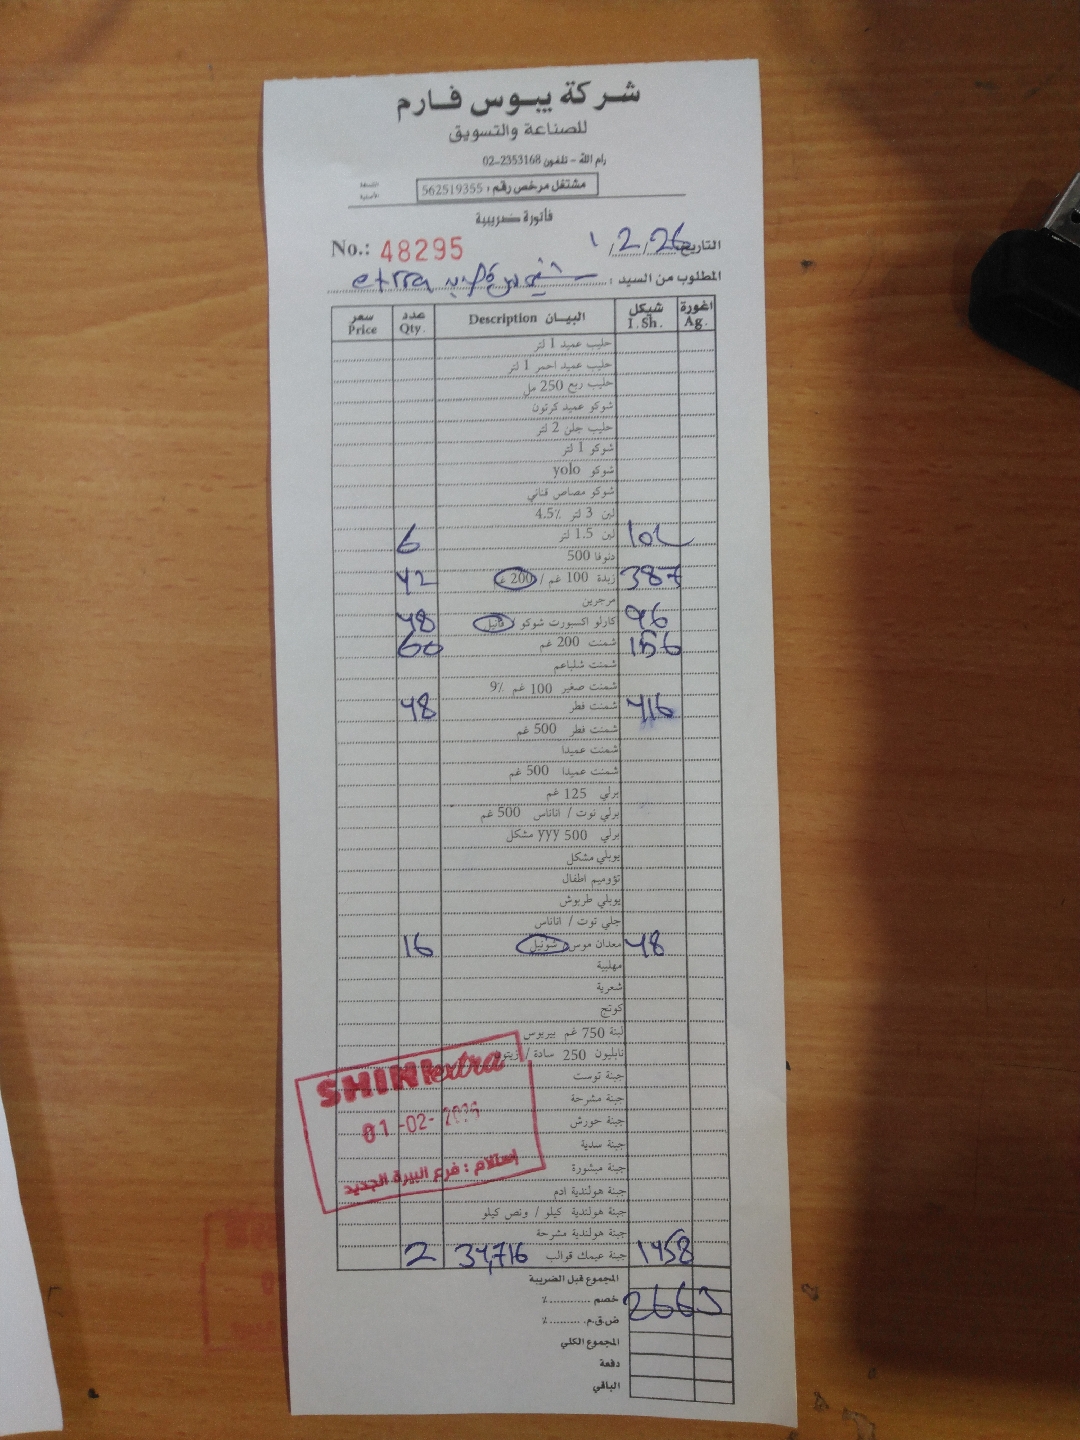 شركة يبوس فارم
للصناعة والتسويق
رام الله - تلفون 2353168-02
مشتغل مرخص رقم : 562519355
النسخة الأصلية
فاتورة ضريبية
No.: 48295
التاريخ 1/2/26
المطلوب من السيد : extra
اغورة Ag. شيكل I.Sh. البيــان Description عدد Qty. سعر Price
حليب عميد 1 لتر
حليب عميد احمر 1 لتر
حليب ربع 250 مل
شوكو عميد كرتون
حليب جلن 2 لتر
شوكو 1 لتر
شوكو yolo
شوكو مصاص قناني
لبن 3 لتر 4.5٪
لبن 1.5 لتر 6
دنوفا 500
387 زبدة 100 غم / 200 غ 42
مرجرين
96 كارلو اكسبورت شوكو / فانيل 48
156 شمنت 200 غم 60
شمنت شلباعم
شمنت صغير 100 غم 9٪
416 شمنت فطر 48
شمنت فطر 500 غم
شمنت عميدا
شمنت عميدا 500 غم
برلي 125 غم
برلي توت / اناناس 500 غم
برلي 500 yyy مشكل
يوبلي مشكل
تؤوميم اطفال
يوبلي طربوش
جلي توت / اناناس
48 معدان موس شونيل 16
مهلبية
شعرية
كوتج
لبنة 750 غم بيريوس
نابليون 250 سادة / زيتون
جبنة توست
جبنة مشرحة
جبنة حورش
جبنة سدية
جبنة مبشورة
جبنة هولندية ادم
جبنة هولندية كيلو / ونص كيلو
جبنة هولندية مشرحة
1458 جبنة عيمك قوالب 34,716 2
المجموع قبل الضريبة
خصم ............ ٪
2663
ض.ق.م. ......... ٪
المجموع الكلي
دفعة
الباقي
SHINI extra
01-02-2026
إستلام : فرع البيرة الجديد